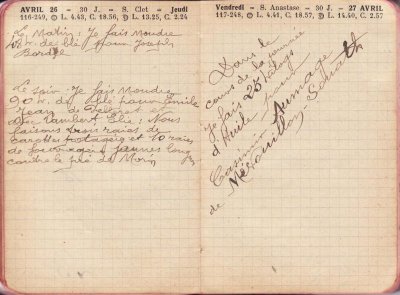 AVRIL 26 - 30 J. - S. Clet - Jeudi
116-249, L. 4.43, C. 18.56, D. L. 13.25, C. 2.24
Le Matin: Je fais Moudre
de blé pour Joseph
Le Soir: Je fais Moudre
90 k. de blé pour Emile
Jean de
Lambert Elie: Nous
faisons trois raies de
carottes potagères et 10 raies
de jaunes long
contre le pré Le Morin
Vendredi - S. Anastase - 30 J. - 27 AVRIL
117-248, L. 4.41, C. 18.57, L. 14.40, C. 2.57
Dans le
cours de la journée
Je fais 25 kilogs
d'Huile pour
Casimir Aumage
de Mérouillon